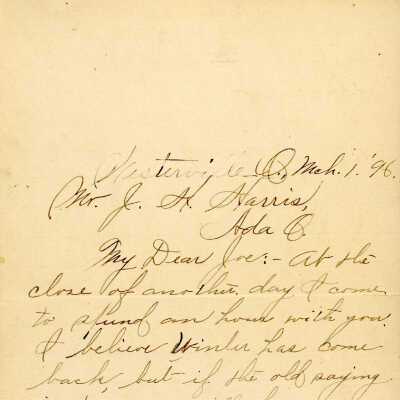 Westerville O., Mch. 1. '96.
Mr. J. H. Harris,
Ada O.
My Dear Joe:- At the
close of another day I come
to spend an hour with you.
I believe Winter has come
back, but if the old saying